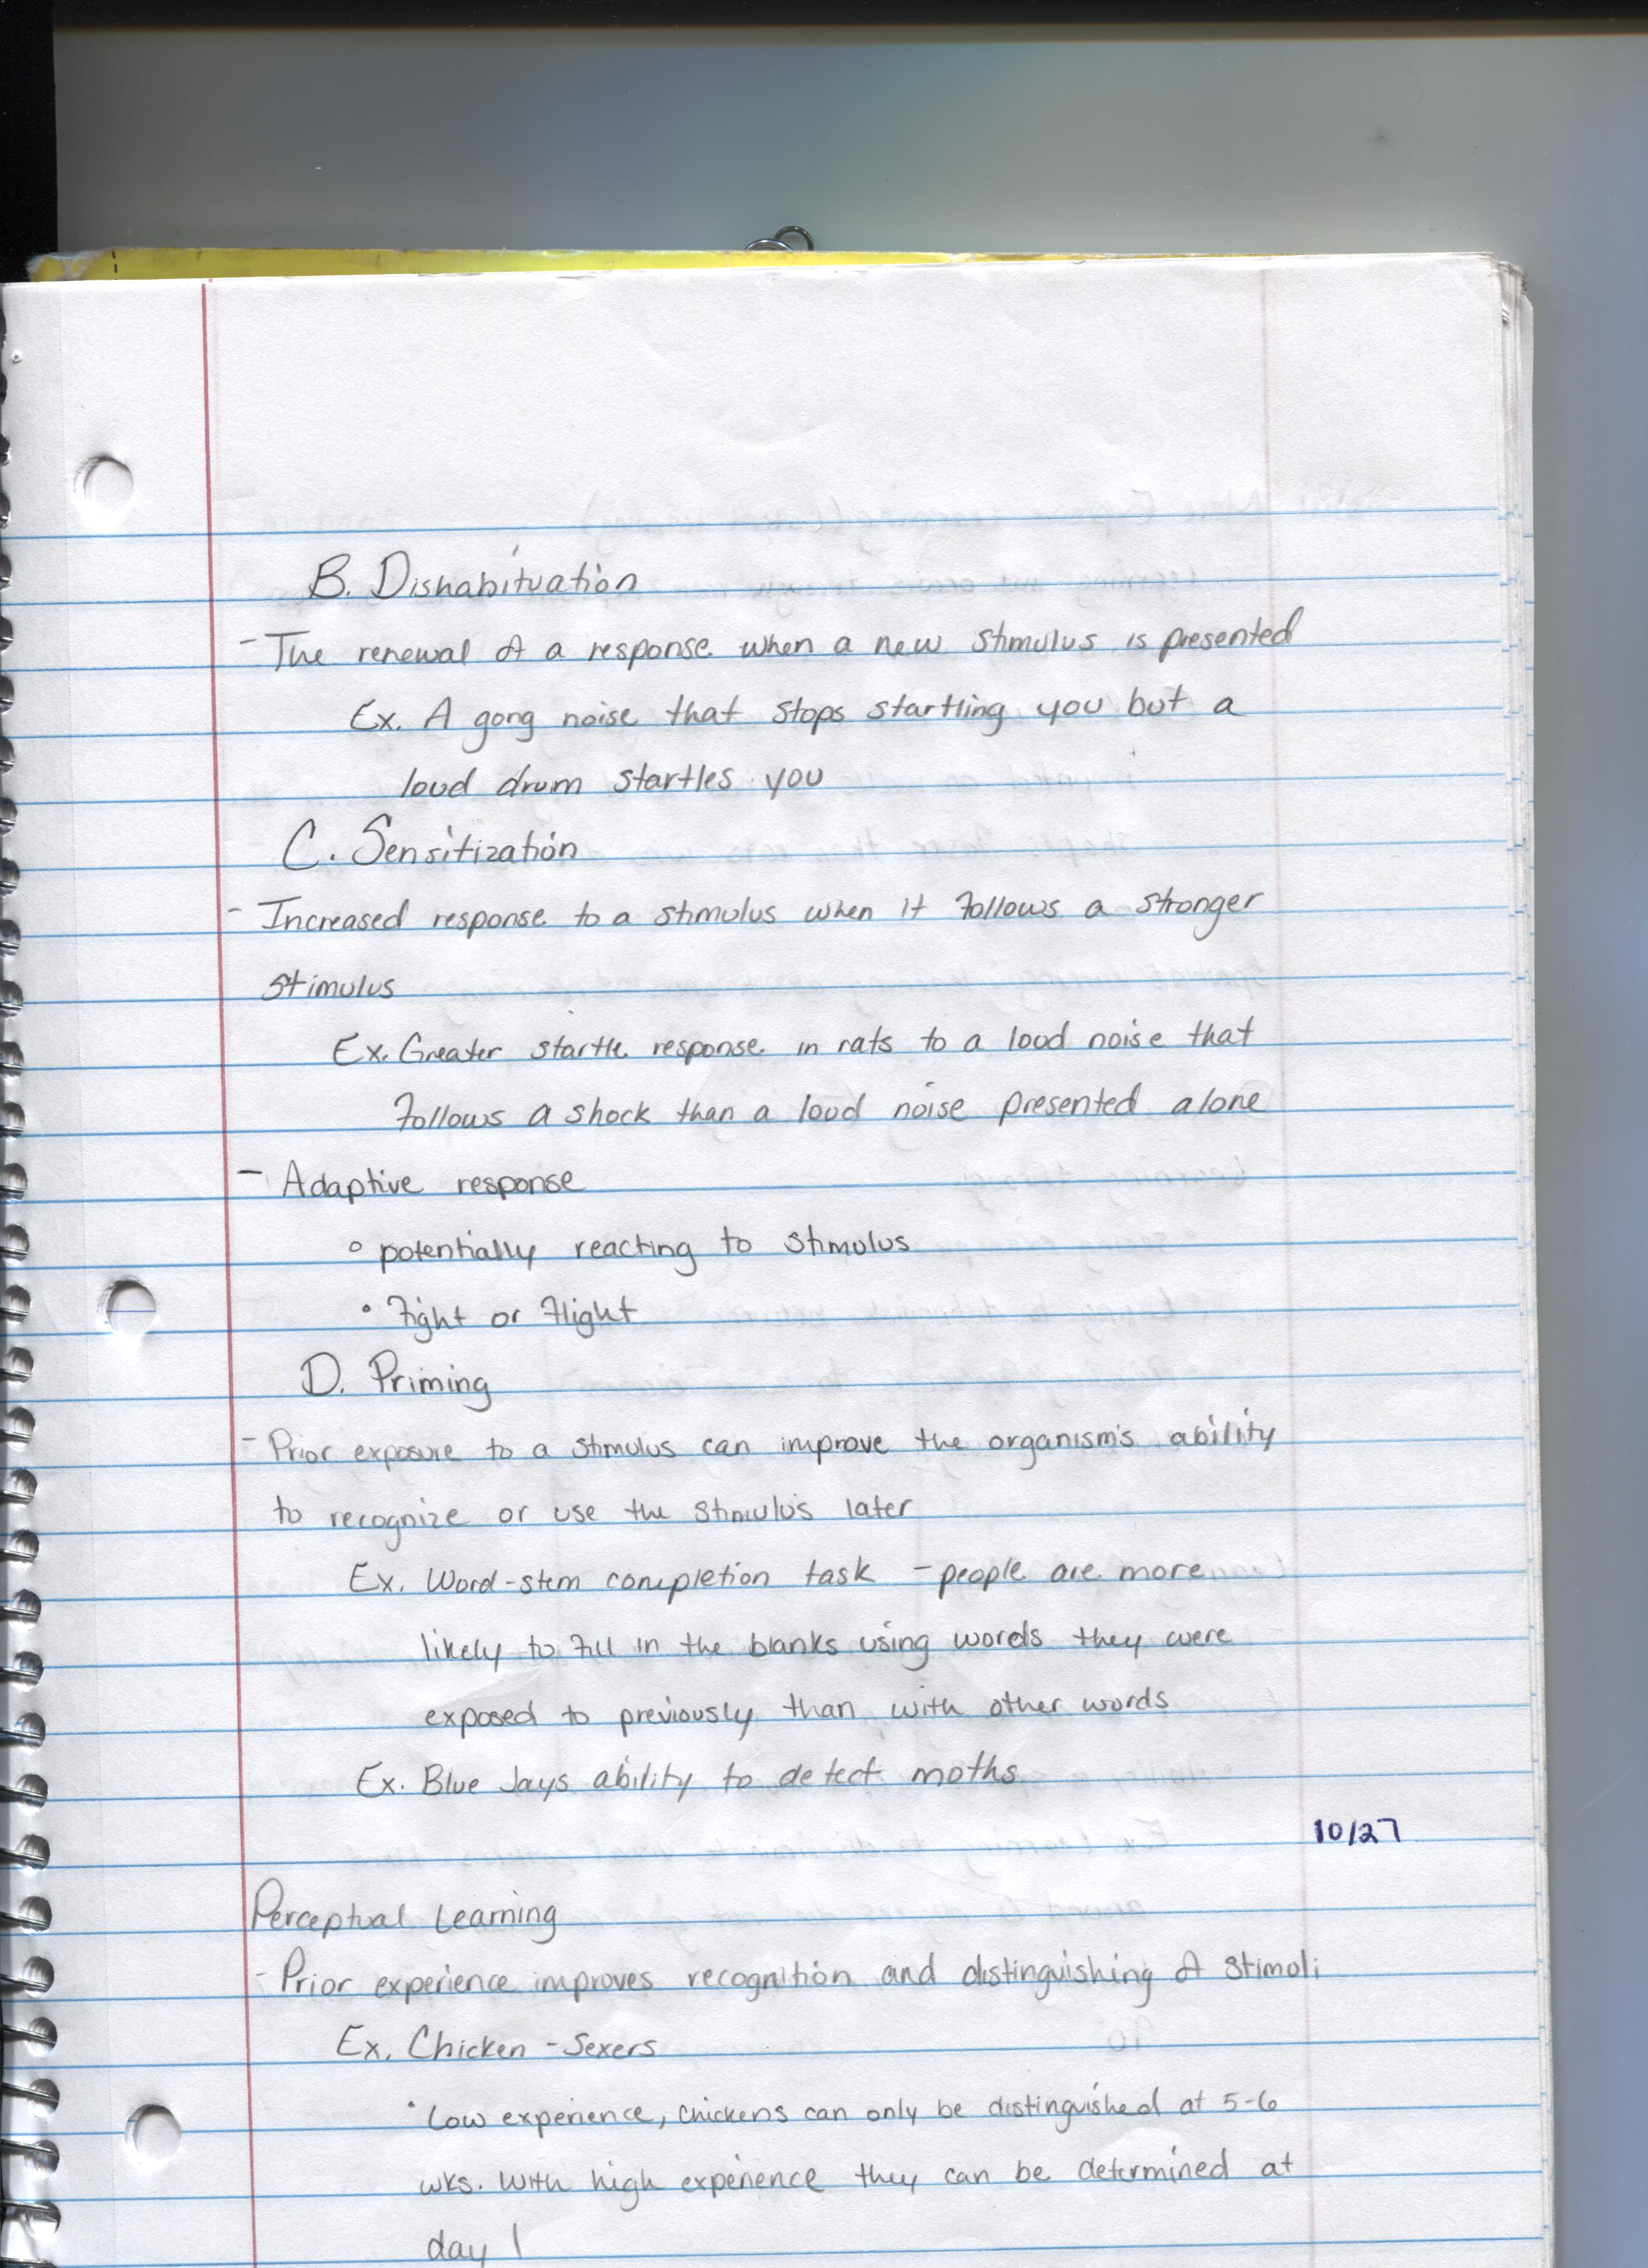 B. Dishabituation
- The renewal of a response when a new stimulus is presented
Ex. A gong noise that stops startling you but a
loud drum startles you
C. Sensitization
- Increased response to a stimulus when it follows a stronger
stimulus
Ex. Greater startle response in rats to a loud noise that
follows a shock than a loud noise presented alone
- Adaptive response
° potentially reacting to stimulus
° Fight or Flight
D. Priming
- Prior exposure to a stimulus can improve the organism's ability
to recognize or use the stimulus later
Ex. Word-stem completion task - people are more
likely to fill in the blanks using words they were
exposed to previously than with other words
Ex. Blue Jays ability to detect moths
10/27
Perceptual Learning
- Prior experience improves recognition and distinguishing of stimuli
Ex. Chicken-Sexers
• Low experience, chickens can only be distinguished at 5-6
wks. With high experience they can be determined at
day 1